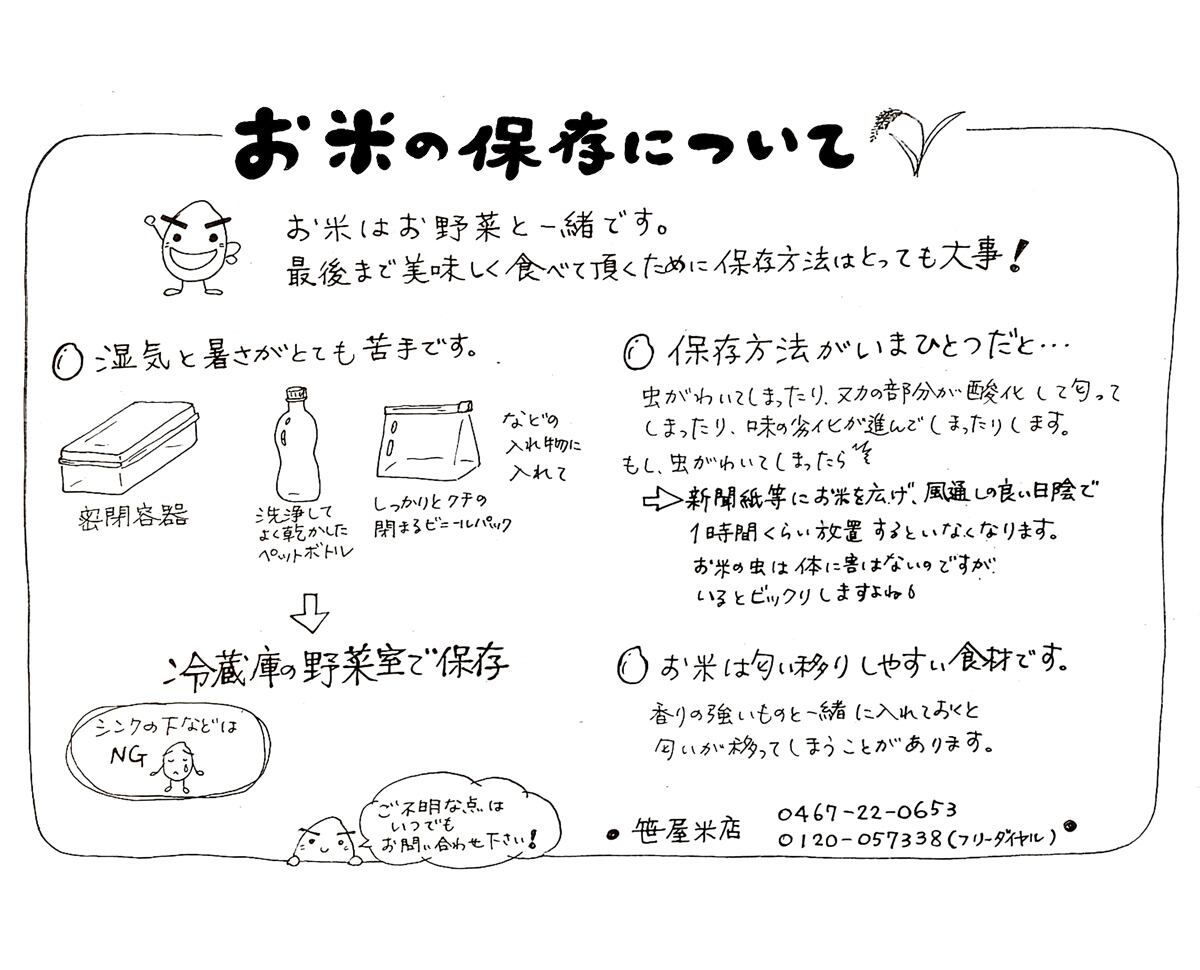 お米の保存について
お米はお野菜と一緒です。
最後まで美味しく食べて頂くために保存方法はとっても大事!
湿気と暑さがとても苦手です。
密閉容器
洗浄して
よく乾かした
ペットボトル
しっかりとクチの
閉まるビニールパック
などの
入れ物に
入れて
冷蔵庫の野菜室で保存
シンクの下などは
NG
保存方法がいまひとつだと…
虫がわいてしまったり、ヌカの部分が酸化して匂って
しまったり、味の劣化が進んでしまったりします。
もし、虫がわいてしまったら
⇨新聞紙等にお米を広げ、風通しの良い日陰で
1時間くらい放置するといなくなります。
お米の虫は体に害はないのですが
いるとビックリしますよね
お米は匂い移りしやすい食材です。
香りの強いものと一緒に入れておくと
匂いが移ってしまうことがあります。
ご不明な点は
いつでも
お問い合わせ下さい!
・笹屋米店
0467-22-0653
0120-057338(フリーダイヤル)・